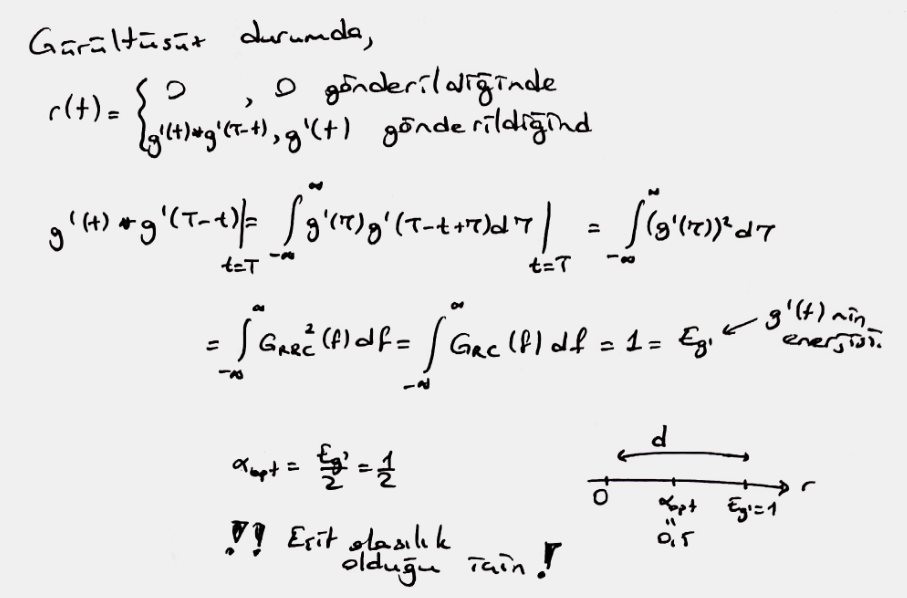 Gürültüsüz durumda,
r(t) = { 0 , 0 gönderildiğinde
g'(t)*g'(T-t), g'(t) gönderildiğind
g'(t) * g'(T-t)|_{t=T} = ∫_{-∞}^{∞} g'(τ)g'(T-t+τ)dτ |_{t=T} = ∫_{-∞}^{∞} (g'(τ))² dτ
= ∫_{-∞}^{∞} G_{RRC}²(f) df = ∫_{-∞}^{∞} G_{RC}(f) df = 1 = E_{g'} ← g'(t) nin
enerjisi.
α_{opt} = E_{g'}/2 = 1/2
d
0 α_{opt} E_{g'}=1 r
"
0,5
!! Eşit olasılık
olduğu için !